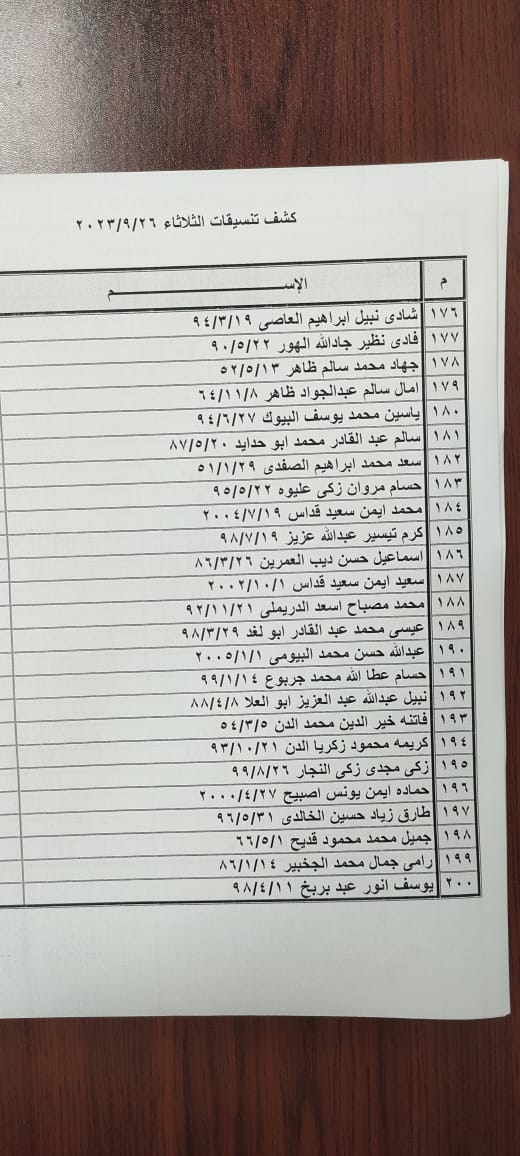 كشف تنسيقات الثلاثاء ٢٠٢٣/٩/٢٦
م الإســـم
١٧٦ شادى نبيل ابراهيم العاصى ٩٤/٣/١٩
١٧٧ فادى نظير جادالله الهور ٩٠/٥/٢٢
١٧٨ جهاد محمد سالم ظاهر ٥٢/٥/١٣
١٧٩ امال سالم عبدالجواد ظاهر ٦٤/١١/٨
١٨٠ ياسين محمد يوسف البيوك ٩٤/٦/٢٧
١٨١ سالم عبد القادر محمد ابو حدايد ٨٧/٥/٢٠
١٨٢ سعد محمد ابراهيم الصفدى ٥١/١/٢٩
١٨٣ حسام مروان زكى عليوه ٩٥/٥/٢٢
١٨٤ محمد ايمن سعيد قداس ٢٠٠٤/٧/١٩
١٨٥ كرم تيسير عبدالله عزيز ٩٨/٧/١٩
١٨٦ اسماعيل حسن ديب العمرين ٨٦/٣/٢٦
١٨٧ سعيد ايمن سعيد قداس ٢٠٠٢/١٠/١
١٨٨ محمد مصباح اسعد الدريملى ٩٢/١١/٢١
١٨٩ عيسى محمد عبد القادر ابو لغد ٩٨/٣/٢٩
١٩٠ عبدالله حسن محمد البيومى ٢٠٠٥/١/١
١٩١ حسام عطا الله محمد جربوع ٩٩/١/١٤
١٩٢ نبيل عبدالله عبد العزيز ابو العلا ٨٨/٤/٨
١٩٣ فاتنه خير الدين محمد الدن ٥٤/٣/٥
١٩٤ كريمه محمود زكريا الدن ٩٣/١٠/٢١
١٩٥ زكى مجدى زكى النجار ٩٩/٨/٢٦
١٩٦ حماده ايمن يونس اصبيح ٢٠٠٠/٤/٢٧
١٩٧ طارق زياد حسين الخالدى ٩٦/٥/٣١
١٩٨ جميل محمد محمود قديح ٦٦/٥/١
١٩٩ رامى جمال محمد الجخبير ٨٦/١/١٤
٢٠٠ يوسف انور عبد بربخ ٩٨/٤/١١